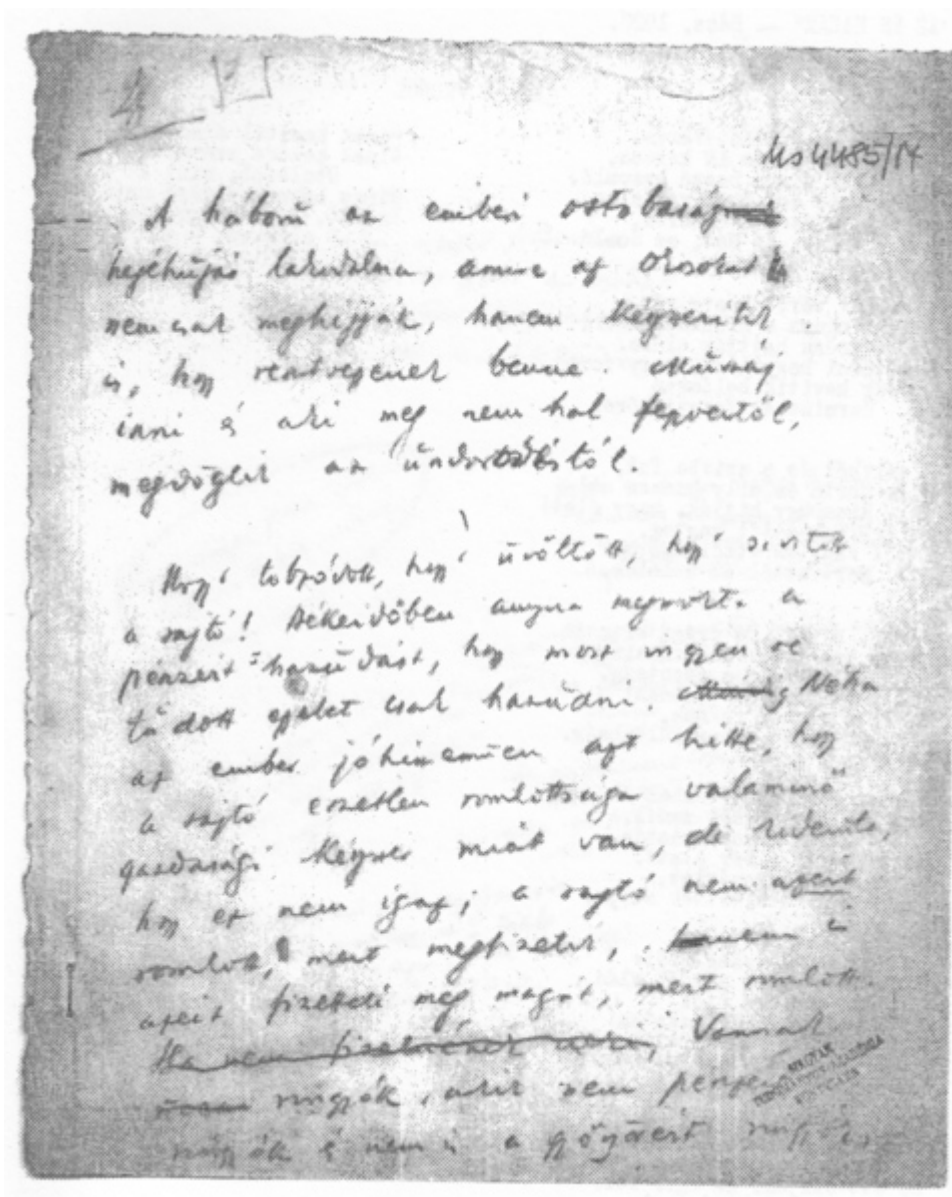 4
Ms 4485/14
A háború az emberi ostobaság
héjehújás lakodalma, amire az okosokat is
nemcsak meghijják, hanem kényszerítik
is, hogy résztvegyenek benne. Muszáj
inni és aki meg nem hal fegyvertől,
megdöglik az undorodástól.
Hogy tobzódott, hogy üvöltött, hogy sivított
a sajtó! Békeidőben annyira megszokta a
pénzért-hazudást, hogy most ingyen se
tudott egyebet csak hazudni. Néha
az ember jóhiszeműen azt hitte, hogy
a sajtó esztelen romlottsága valaminő
gazdasági kényszer miatt van, de kiderült,
hogy ez nem igaz; a sajtó nem azért
romlott, mert megfizetik, hanem
azért fizetteti meg magát, mert romlott.
Ha nem fizetnének neki, Vannak
rimák, akik nem pénzért
és nem is a gyönyörért
MAGYAR
TUDOMÁNYOS AKADÉMIA
KÖNYVTÁRA